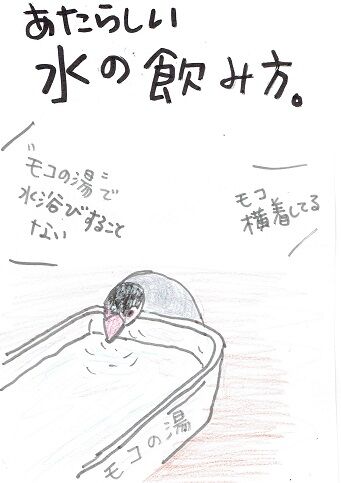 あたらしい
水の飲み方。
"モコの湯"で
水浴びすること
ない
モコ
横着してる
モコの湯